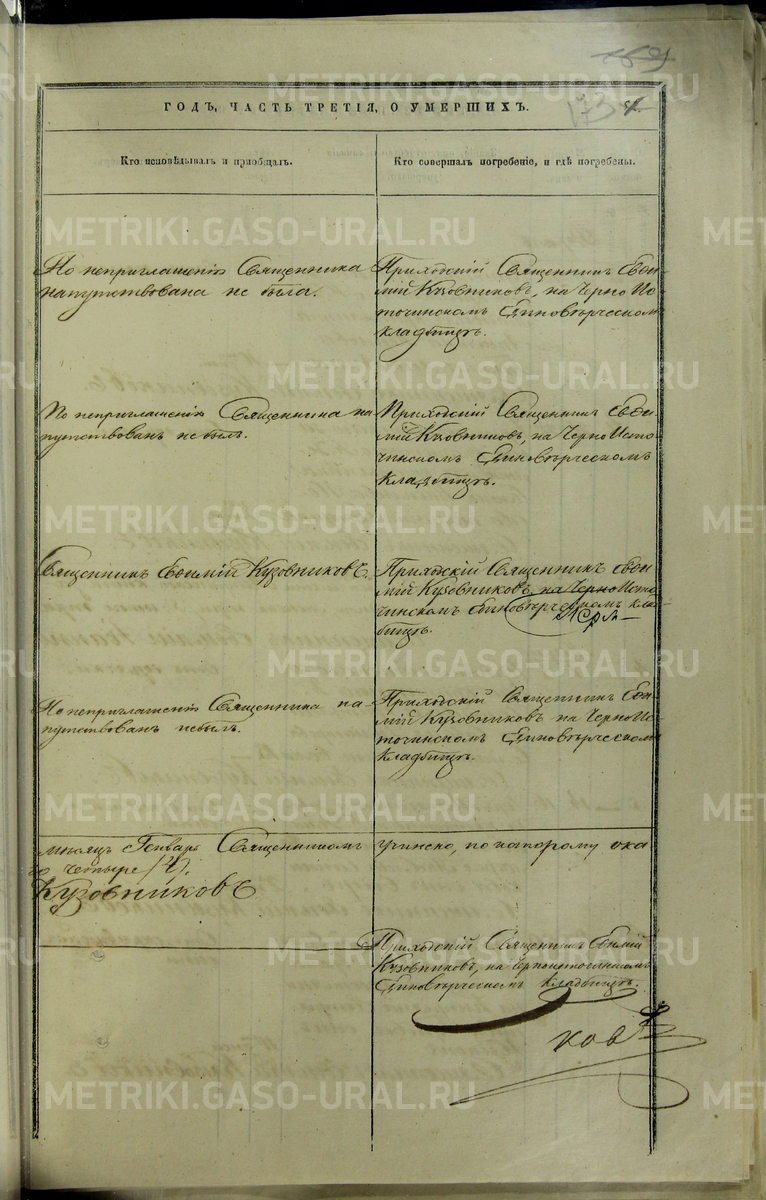 173
ГОДЪ, ЧАСТЬ ТРЕТІЯ, О УМЕРШИХЪ.
Кто исповѣдывалъ и пріобщалъ.
Кто совершалъ погребеніе, и гдѣ погребены.
По неприглашенію Священника
напутствована не была.
Приходскій Священникъ Евѳи-
мій Кузовниковъ, на Черно Ис-
точинскомъ Единовѣрческомъ
кладбищѣ.
По неприглашенію Священника на-
путствованъ не былъ.
Приходскій Священникъ Евѳи-
мій Кузовниковъ, на Черно Исто-
чинскомъ Единовѣрческомъ
кладбищѣ.
Священникъ Евѳимій Кузовниковъ.
Приходскій Священникъ Евѳи-
мій Кузовниковъ, на Черно Исто-
чинскомъ Единовѣрческомъ кла-
бищѣ.
По неприглашенію Священника на-
путствованъ небылъ.
Приходскій Священникъ Евѳи-
мій Кузовниковъ на Черно Ис-
точинскомъ Единовѣрческомъ
кладбищѣ.
мѣсяцъ Генварь Священникомъ
учинено, по которому ока
четыре (4).
Кузовниковъ
Приходскій Священникъ Евѳимій
Кузовниковъ, на Черноисточинскомъ
Единовѣрческомъ кладбищѣ.
ковъ
METRIKI.GASO-URAL.RU